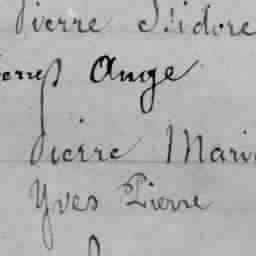 Pierre Isidore
Ange
Pierre Mari
Yves Pierre